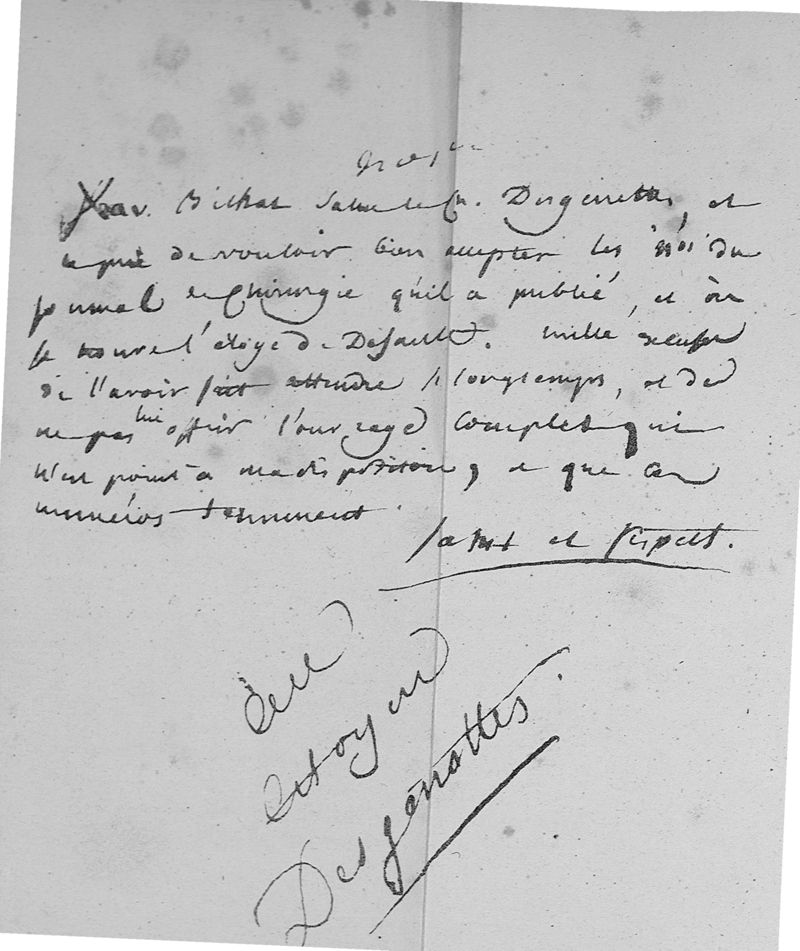 Xav. Bichat Salue le Cn. Desgenettes, et
le prie de vouloir bien accepter les nos du
journal de Chirurgie qu'il a publié, et où
se trouve l'éloge de Desault. mille excuses
de l'avoir fait attendre si longtemps, et de
ne pas lui offrir l'ouvrage complet qui
n'est point à ma disposition, et que ces
numéros terminent.
salut et respect.
au
citoyen
Desgenettes.